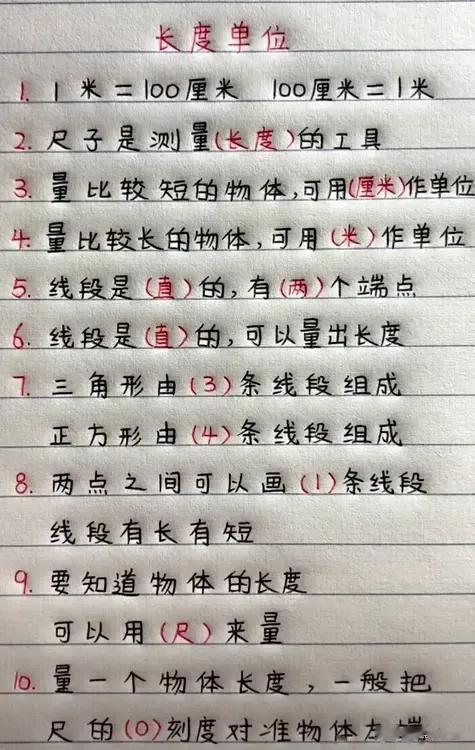 长度单位
1. 1米=100厘米 100厘米=1米
2. 尺子是测量(长度)的工具
3. 量比较短的物体,可用(厘米)作单位
4. 量比较长的物体,可用(米)作单位
5. 线段是(直)的,有(两)个端点
6. 线段是(直)的,可以量出长度
7. 三角形由(3)条线段组成
正方形由(4)条线段组成
8. 两点之间可以画(1)条线段
线段有长有短
9. 要知道物体的长度
可以用(尺)来量
10. 量一个物体长度,一般把
尺的(0)刻度对准物体左端